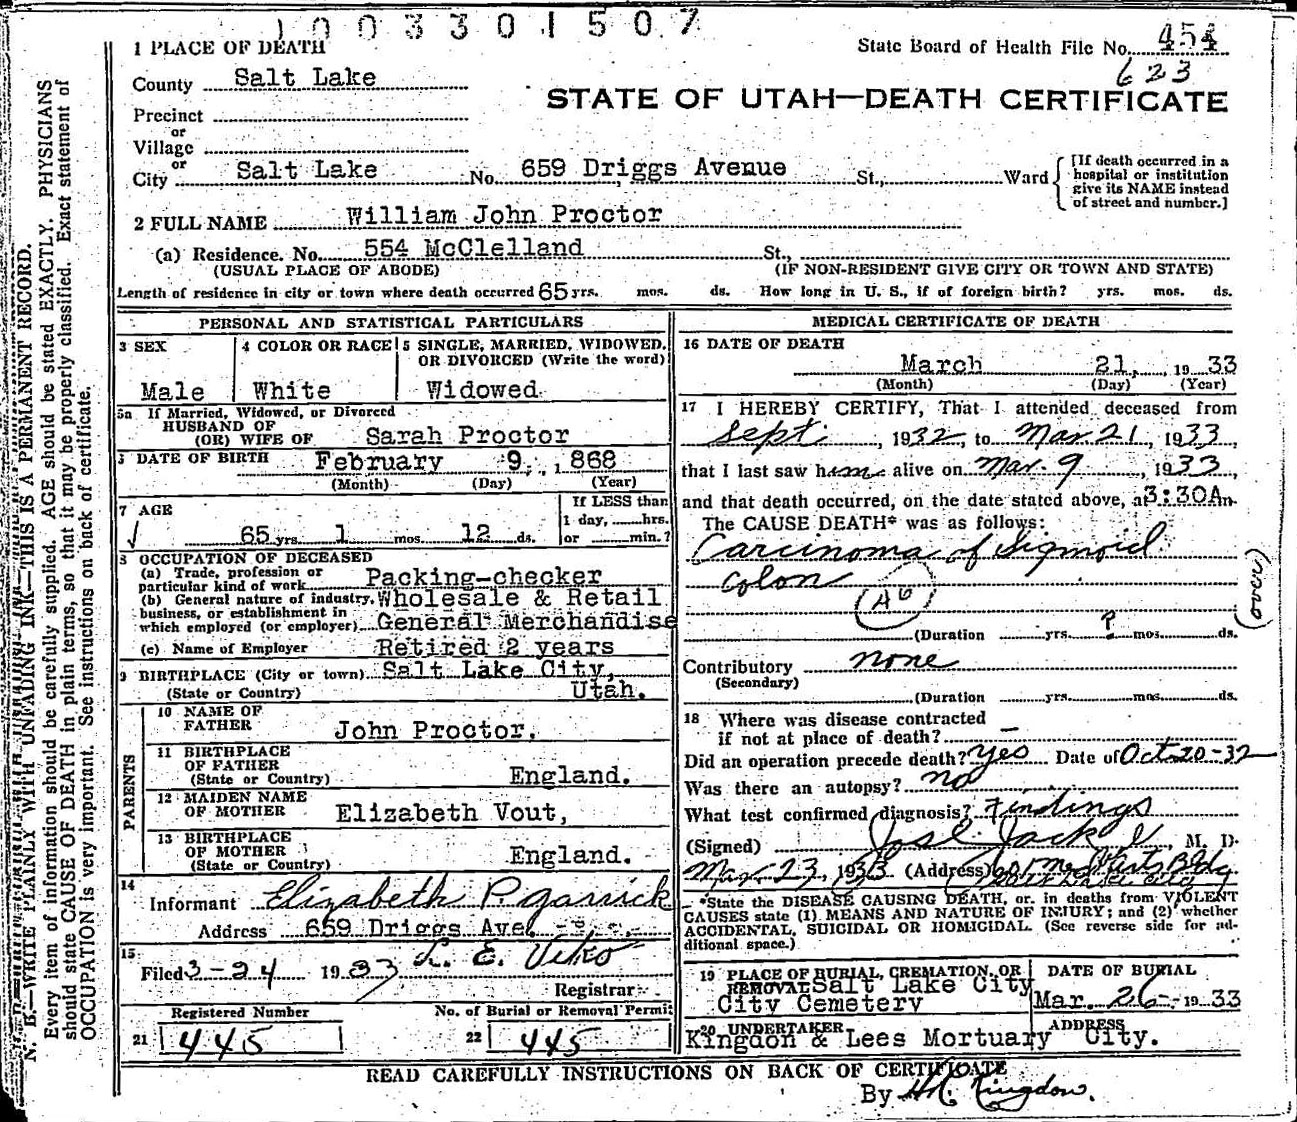 1003301507
1 PLACE OF DEATH
State Board of Health File No. 454
623
County Salt Lake
STATE OF UTAH—DEATH CERTIFICATE
Precinct
or
Village
or
City Salt Lake No. 659 Driggs Avenue St., Ward
[If death occurred in a
hospital or institution
give its NAME instead
of street and number.]
2 FULL NAME William John Proctor
(a) Residence. No. 554 McClelland St.,
(USUAL PLACE OF ABODE) (IF NON-RESIDENT GIVE CITY OR TOWN AND STATE)
Length of residence in city or town where death occurred 65 yrs. mos. ds. How long in U. S., if of foreign birth? yrs. mos. ds.
PERSONAL AND STATISTICAL PARTICULARS
3 SEX
Male
4 COLOR OR RACE
White
5 SINGLE, MARRIED, WIDOWED,
OR DIVORCED (Write the word)
Widowed
5a If Married, Widowed, or Divorced
HUSBAND OF
(OR) WIFE OF Sarah Proctor
DATE OF BIRTH February 9, 1868
(Month) (Day) (Year)
7 AGE
65 yrs. 1 mos. 12 ds.
If LESS than
1 day, hrs.
or min.?
8 OCCUPATION OF DECEASED
(a) Trade, profession or
particular kind of work Packing-checker
(b) General nature of industry, Wholesale & Retail
business, or establishment in
which employed (or employer) General Merchandise
(c) Name of Employer Retired 2 years
9 BIRTHPLACE (City or town) Salt Lake City,
(State or Country) Utah.
PARENTS
10 NAME OF
FATHER John Proctor,
11 BIRTHPLACE
OF FATHER
(State or Country) England.
12 MAIDEN NAME
OF MOTHER Elizabeth Vout,
13 BIRTHPLACE
OF MOTHER
(State or Country) England.
14
Informant Elizabeth P. Garrick
Address 659 Driggs Ave.
15
Filed 3-24 1933
Registrar
Registered Number
21 445
No. of Burial or Removal Permit
22 445
MEDICAL CERTIFICATE OF DEATH
16 DATE OF DEATH
March 21, 1933
(Month) (Day) (Year)
17 I HEREBY CERTIFY, That I attended deceased from
Sept. , 1932, to Mar 21, 1933,
that I last saw him alive on Mar. 9, 1933,
and that death occurred, on the date stated above, at 3:30A m.
The CAUSE DEATH* was as follows:
Carcinoma of Sigmoid
colon
46
(over)
(Duration yrs. ? mos. ds.
Contributory none
(Secondary)
(Duration yrs. mos. ds.
18 Where was disease contracted
if not at place of death? —
Did an operation precede death? Yes Date of Oct 20-32
Was there an autopsy? no
What test confirmed diagnosis? Findings
(Signed) Jos. E. Jack , M. D.
Mar 23, 1933 (Address) 601 Med Arts Bldg
Salt Lake City
*State the DISEASE CAUSING DEATH, or, in deaths from VIOLENT
CAUSES state (1) MEANS AND NATURE OF INJURY; and (2) whether
ACCIDENTAL, SUICIDAL OR HOMICIDAL. (See reverse side for ad-
ditional space.)
19 PLACE OF BURIAL, CREMATION, OR
REMOVAL Salt Lake City
City Cemetery
DATE OF BURIAL
Mar. 26 1933
20 UNDERTAKER
Kingdon & Lees Mortuary
ADDRESS
City.
READ CAREFULLY INSTRUCTIONS ON BACK OF CERTIFICATE
By Kingdon.
N. B.—WRITE PLAINLY WITH UNFADING INK—THIS IS A PERMANENT RECORD.
Every item of information should be carefully supplied. AGE should be stated EXACTLY. PHYSICIANS
should state CAUSE OF DEATH in plain terms, so that it may be properly classified. Exact statement of
OCCUPATION is very important. See instructions on back of certificate.